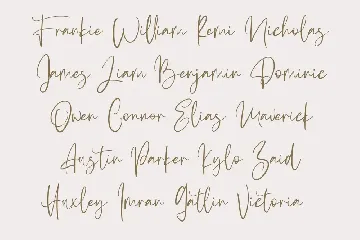 Frankie William Remi Nicholas
James Liam Benjamin Dominic
Owen Connor Elias Maverick
Austin Parker Kylo Zaid
Huxley Imran Gatlin Victoria